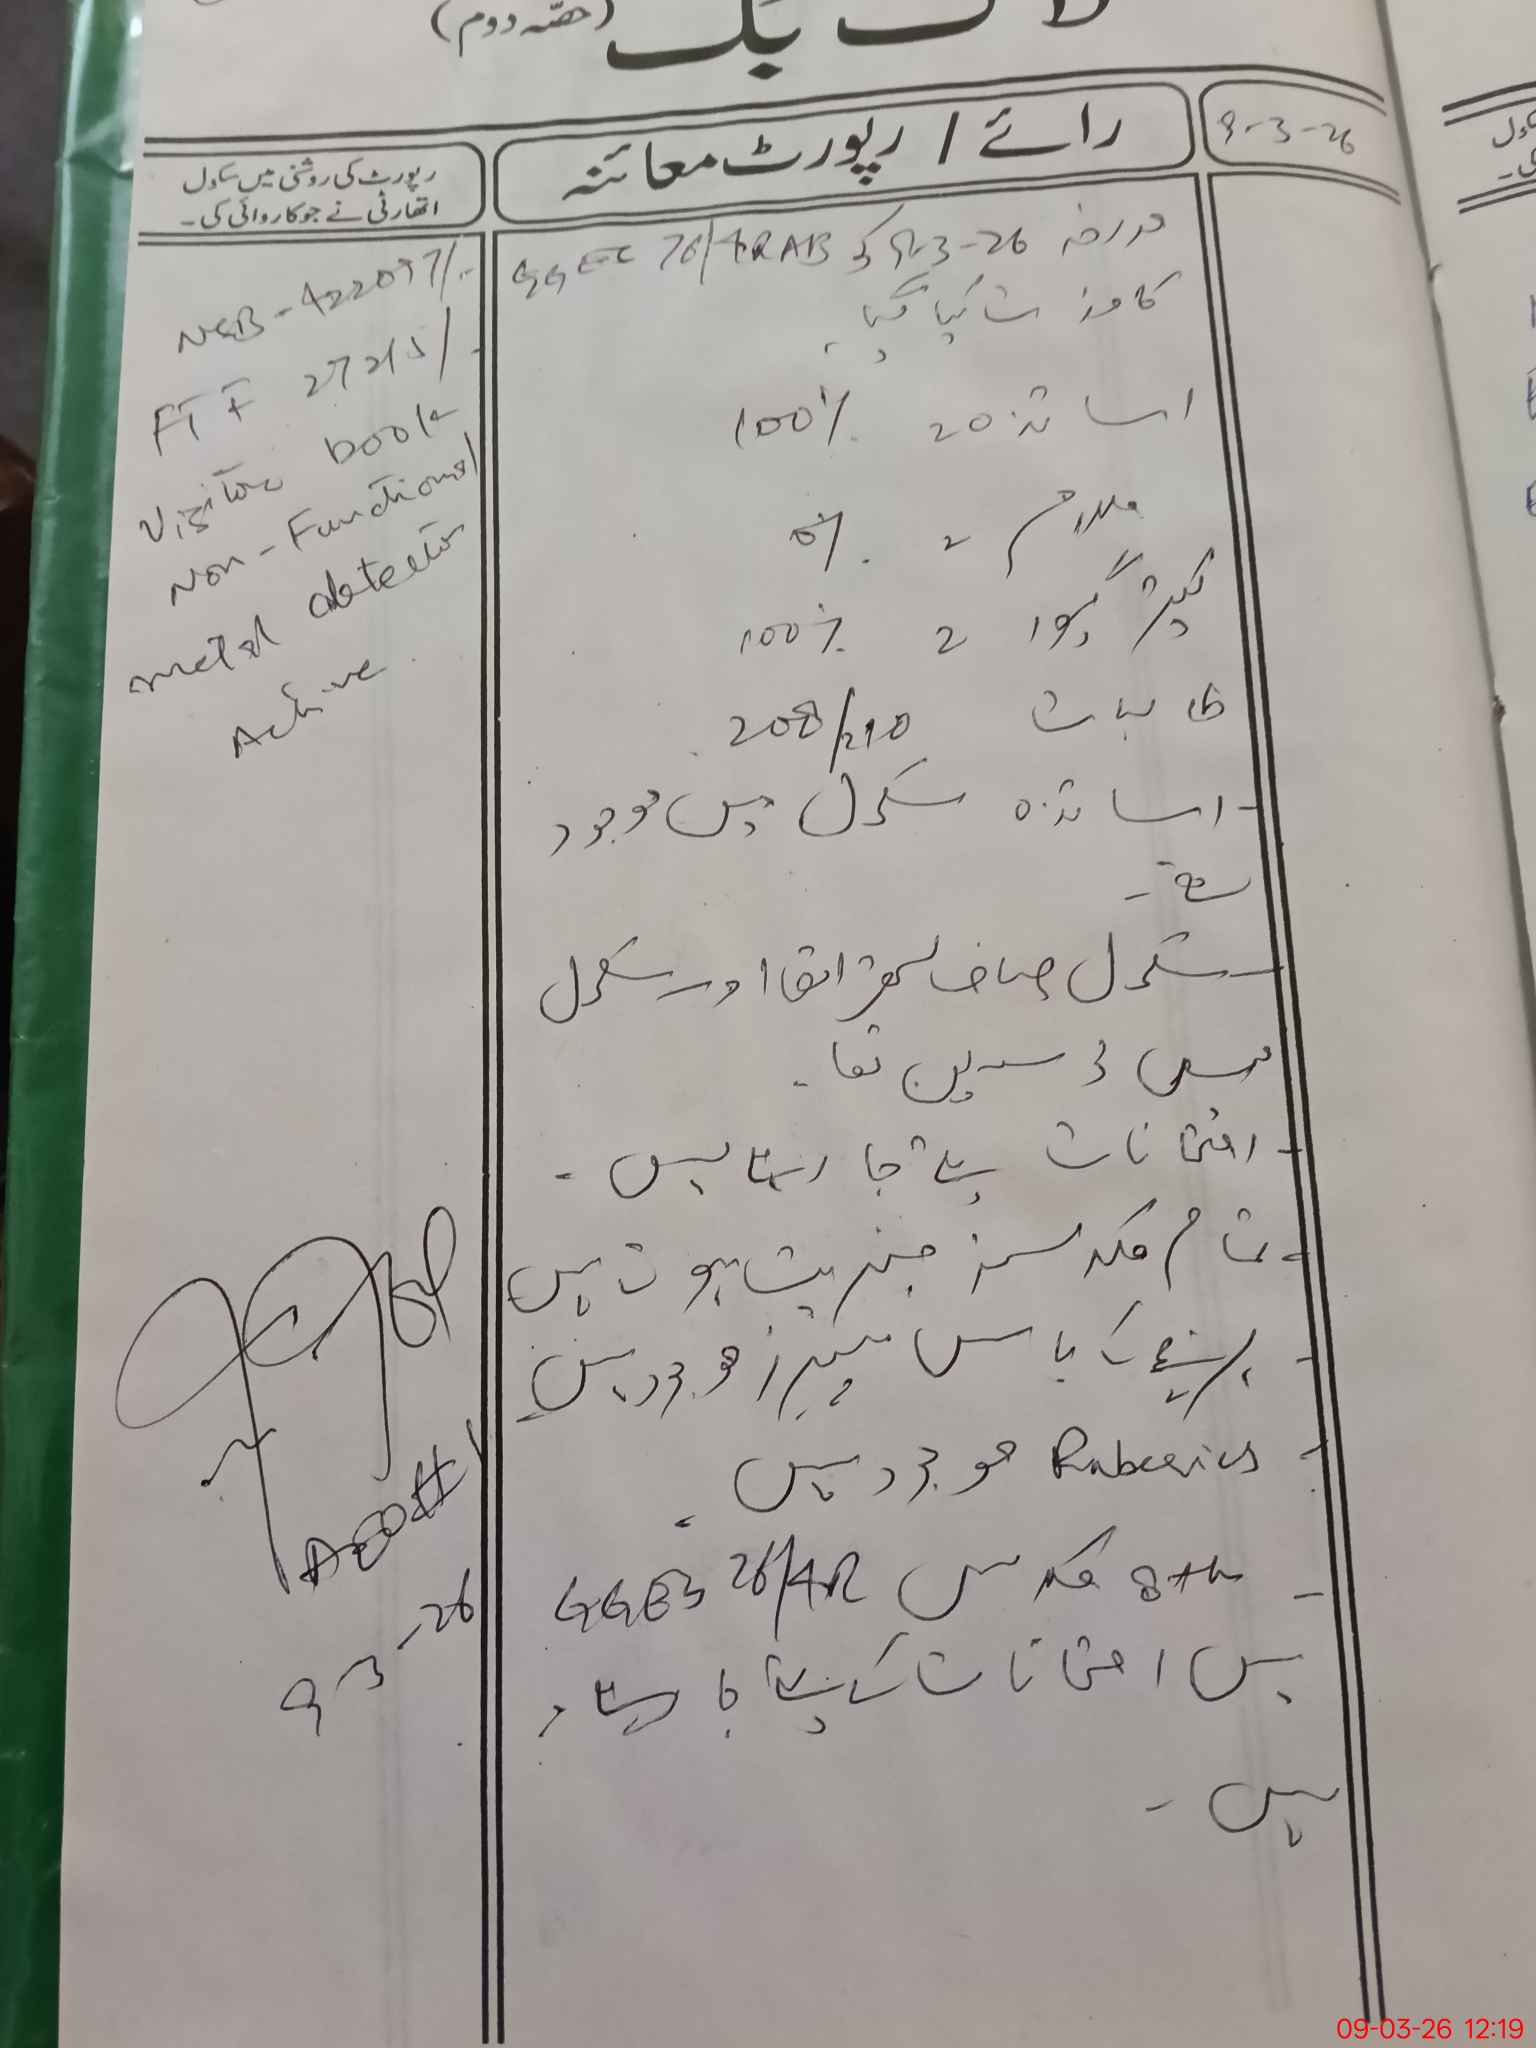 لاگ بک (حصّہ دوم)
9-3-26
رائے / رپورٹ معائنہ
رپورٹ کی روشنی میں سکول
اتھارٹی نے جو کاروائی کی۔
مورخہ 9-3-26 کو GGES 26/4R AB
کا وزٹ کیا گیا۔
اساتذہ 20 100%
ملازم 2 0%
کیئر گیور 2 100%
طالبات 208/210
- اساتذہ سکول میں موجود
تھے۔
- سکول صاف ستھرا تھا اور سکول
میں ڈسپلن تھا۔
- امتحانات لیے جا رہے ہیں۔
- تمام کلاسز میں ہیں
- ٹیچر کے پاس پیپرز موجود ہیں
- Ruberics موجود ہیں۔
- 8th کلاس GGES 26/4R
میں امتحانات لیے جا رہے
ہیں۔
NSB - 422097/-
FTF 27215/-
Visitor book
Non-Functional
metal detector
Active
9-3-26
09-03-26 12:19